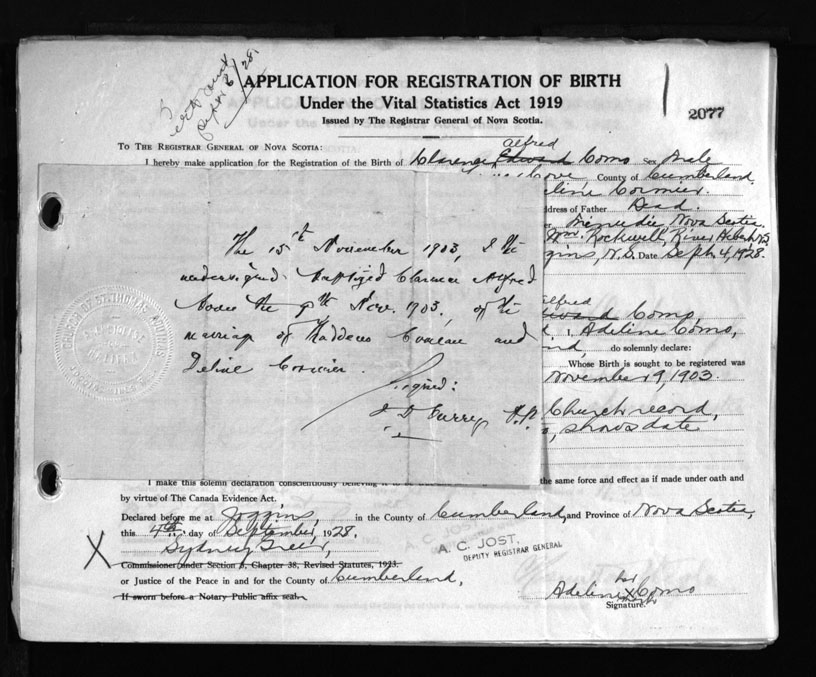 Sept 6/28.
APPLICATION FOR REGISTRATION OF BIRTH
Under the Vital Statistics Act 1919
Issued by The Registrar General of Nova Scotia.
2077
TO THE REGISTRAR GENERAL OF NOVA SCOTIA:
alfred
I hereby make application for the Registration of the Birth of Clarence Edward Como Sex Male
Cove, County of Cumberland,
eline Cormier.
ddress of Father Dead.
Minudie Nova Scotia
Wm. Rockwell, River Hebert, N.S.
gins, N.S. Date Sept. 4, 1928.
The 15th November 1903, I the
undersigned baptized Clarence Alfred
born the 9th Nov. 1903, of the
marriage of Thaddeus Comeau and
Deline Cormier.
Signed:
J D Curry P.P.
alfred
Edward Como,
I, Adeline Como,
ind, do solemnly declare:
Whose Birth is sought to be registered was
November 9, 1903.
Church record,
shows date
I make this solemn declaration conscientiously believing it to
the same force and effect as if made under oath and
by virtue of The Canada Evidence Act.
Declared before me at Joggins, in the County of Cumberland, and Province of Nova Scotia,
this 4th day of September, 1928.
A. C. JOST,
DEPUTY REGISTRAR GENERAL
Sydney Greer,
X
Commissioner under Section 5, Chapter 38, Revised Statutes, 1923.
or Justice of the Peace in and for the County of Cumberland,
If sworn before a Notary Public affix seal.
her
Adeline X Como
mark
Signature.